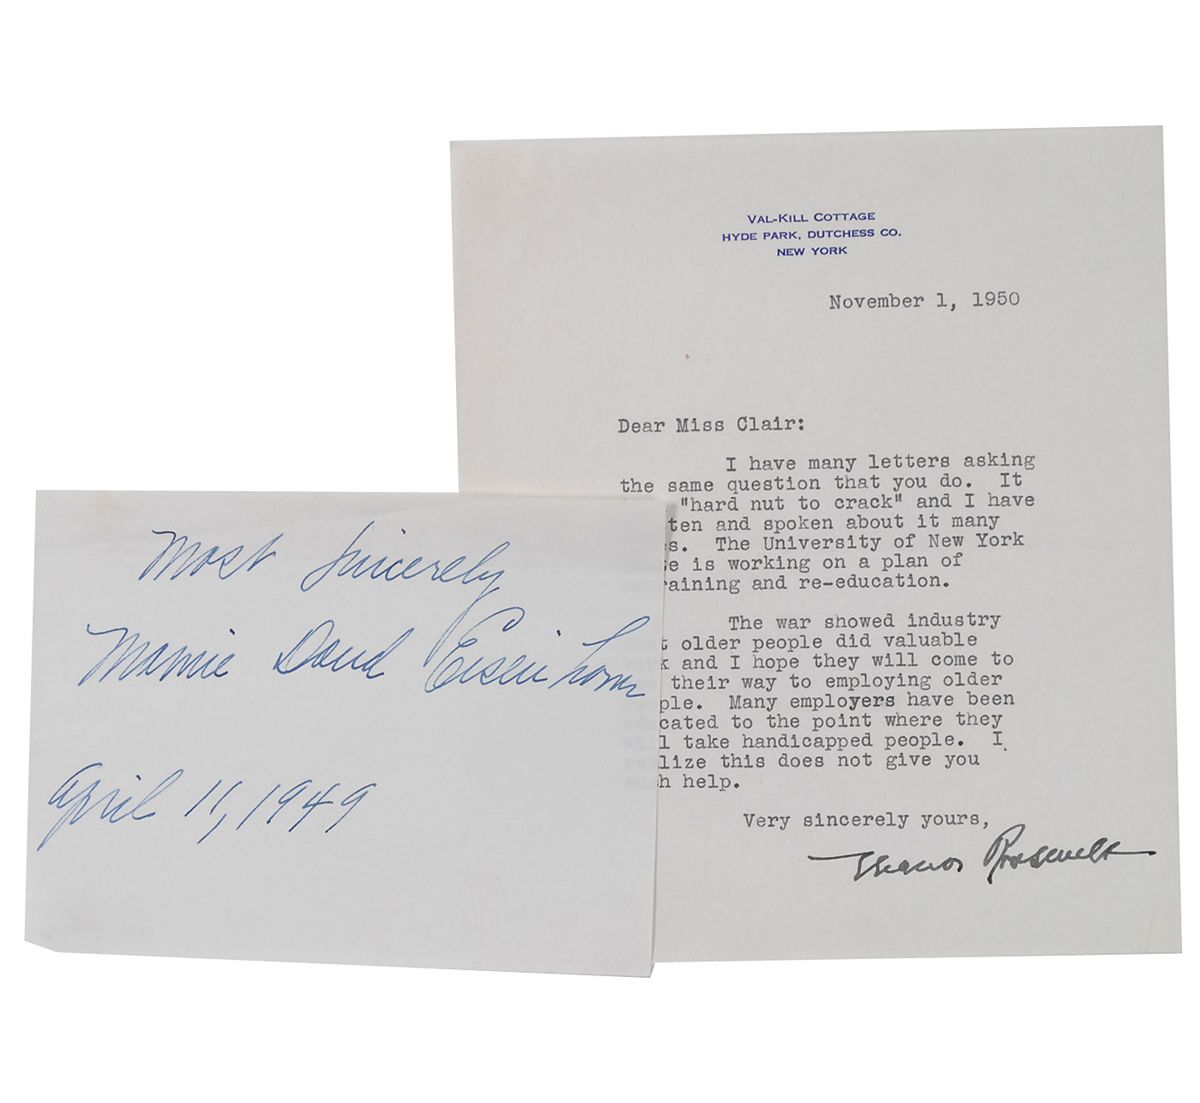 VAL-KILL COTTAGE
HYDE PARK, DUTCHESS CO.
NEW YORK
November 1, 1950
Dear Miss Clair:
I have many letters asking
the same question that you do. It
"hard nut to crack" and I have
ten and spoken about it many
s. The University of New York
e is working on a plan of
raining and re-education.
The war showed industry
t older people did valuable
k and I hope they will come to
their way to employing older
ple. Many employers have been
cated to the point where they
l take handicapped people. I
lize this does not give you
h help.
Very sincerely yours,
Eleanor Roosevelt
Most Sincerely
Mamie Doud Eisenhower
April 11, 1949